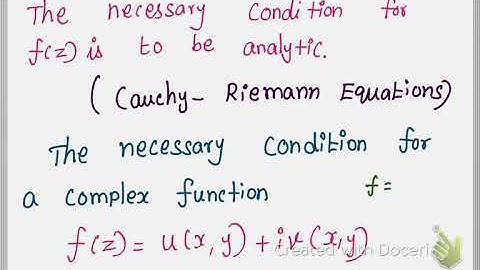 The necessary Condition for
f(z) is to be analytic.
(Cauchy- Riemann Equations)
The necessary Condition for
a Complex function f=
f(z)= u(x,y)+iv(x,y)
Created with Doceri